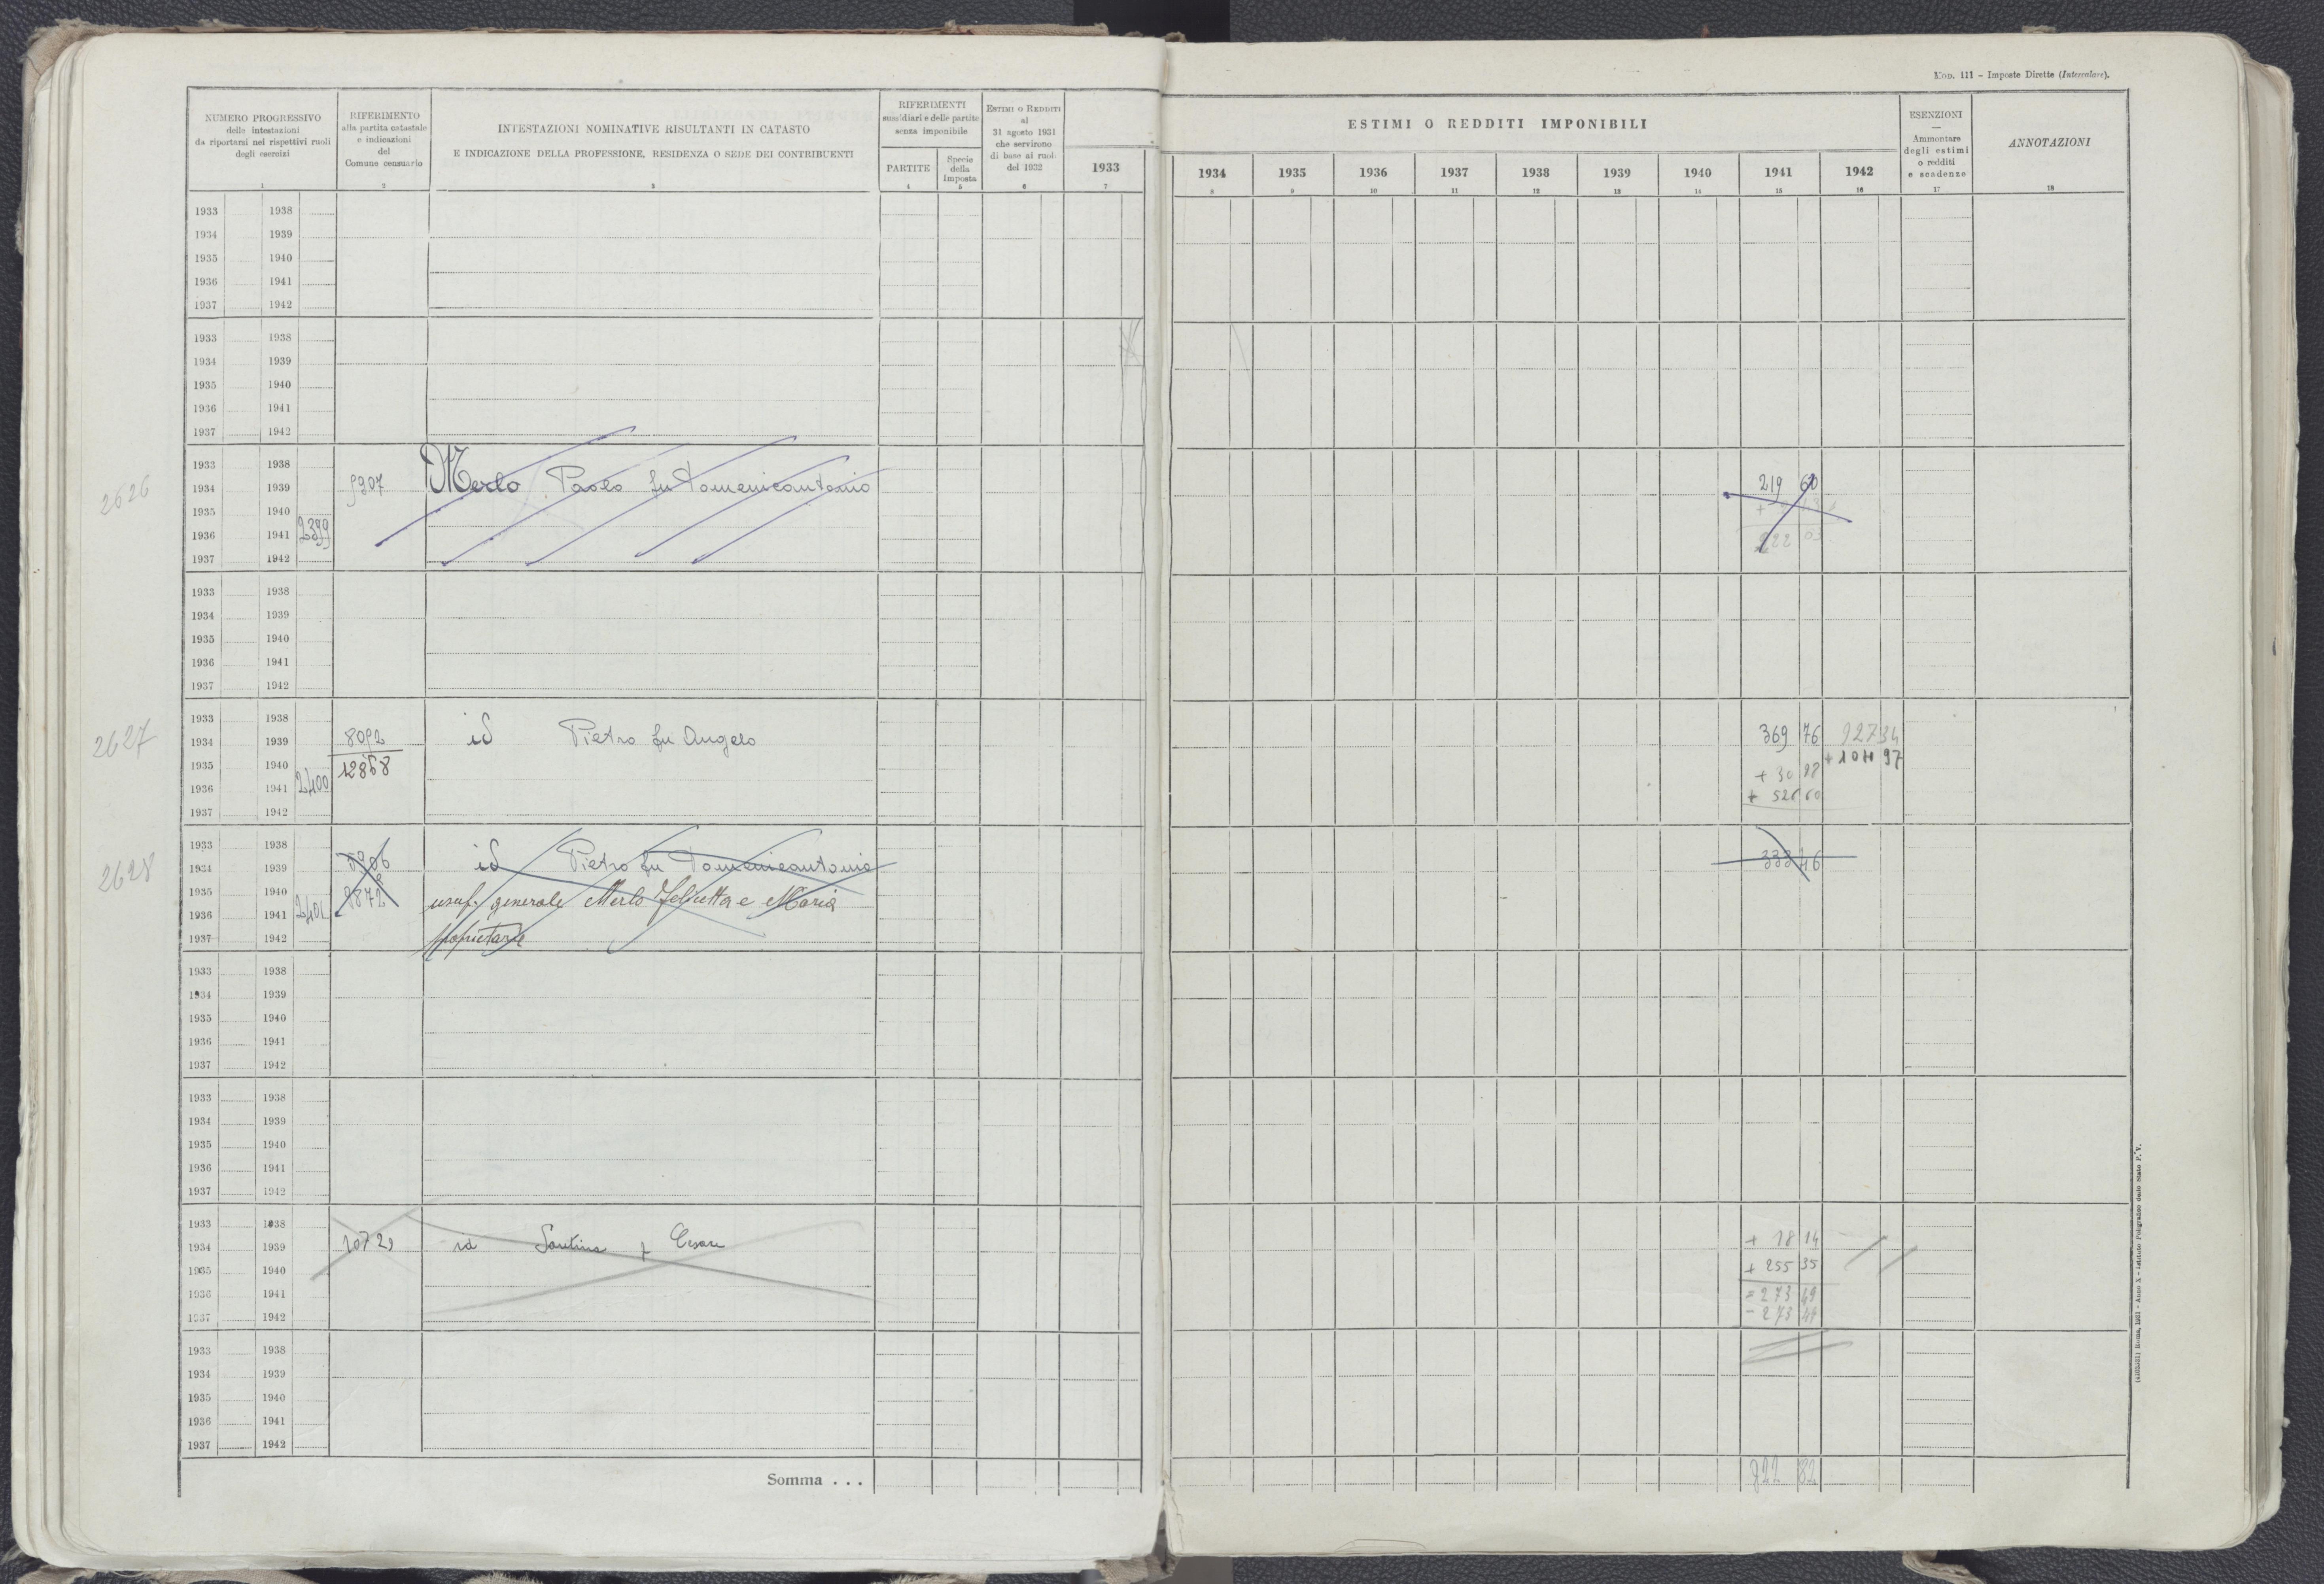 Mod. 111 - Imposte Dirette (Intercalare).
NUMERO PROGRESSIVO
delle intestazioni
da riportarsi nei rispettivi ruoli
degli esercizi
1
RIFERIMENTO
alla partita catastale
e indicazioni
del
Comune censuario
2
INTESTAZIONI NOMINATIVE RISULTANTI IN CATASTO
E INDICAZIONE DELLA PROFESSIONE, RESIDENZA O SEDE DEI CONTRIBUENTI
3
RIFERIMENTI
sussidiari e delle partite
senza imponibile
PARTITE
4
Specie
della
Imposta
5
ESTIMI O REDDITI
al
31 agosto 1931
che servirono
di base ai ruoli
del 1932
6
1933
7
ESTIMI O REDDITI IMPONIBILI
1934 1935 1936 1937 1938 1939 1940 1941 1942
8 9 10 11 12 13 14 15 16
ESENZIONI
—
Ammontare
degli estimi
o redditi
e scadenze
17
ANNOTAZIONI
18
1933 1938
1934 1939
1935 1940
1936 1941
1937 1942
1933 1938
1934 1939
1935 1940
1936 1941
1937 1942
1933 1938
2626 1934 1939 5907 Merlo Paolo fu Domenicantonio 219 60
1935 1940
1936 1941 2399 222 03
1937 1942
1933 1938
1934 1939
1935 1940
1936 1941
1937 1942
1933 1938
2627 1934 1939 8092 id Pietro fu Angelo 369 76 927 34
1935 1940 12868 97
1936 1941 2400 + 30
1937 1942 + 526 60
1933 1938
2628 1934 1939 5906 id Pietro fu Domenicantonio 333 46
1935 1940 8872 usuf. generale Merlo e Maria
1936 1941 2401
1937 1942 proprietarie
1933 1938
1934 1939
1935 1940
1936 1941
1937 1942
1933 1938
1934 1939
1935 1940
1936 1941
1937 1942
1933 1938
1934 1939 id f Cesare + 18 14
1935 1940 + 255 35
1936 1941 = 273 49
1937 1942 - 273 49
1933 1938
1934 1939
1935 1940
1936 1941
1937 1942
Somma . . . 922 82